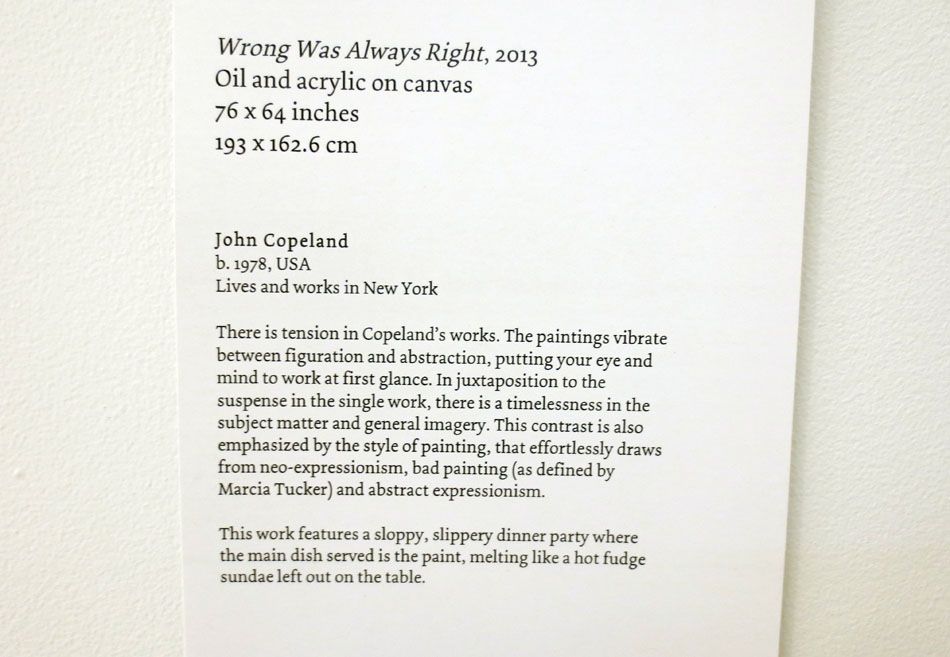 Wrong Was Always Right, 2013
Oil and acrylic on canvas
76 x 64 inches
193 x 162.6 cm
John Copeland
b. 1978, USA
Lives and works in New York
There is tension in Copeland's works. The paintings vibrate
between figuration and abstraction, putting your eye and
mind to work at first glance. In juxtaposition to the
suspense in the single work, there is a timelessness in the
subject matter and general imagery. This contrast is also
emphasized by the style of painting, that effortlessly draws
from neo-expressionism, bad painting (as defined by
Marcia Tucker) and abstract expressionism.
This work features a sloppy, slippery dinner party where
the main dish served is the paint, melting like a hot fudge
sundae left out on the table.